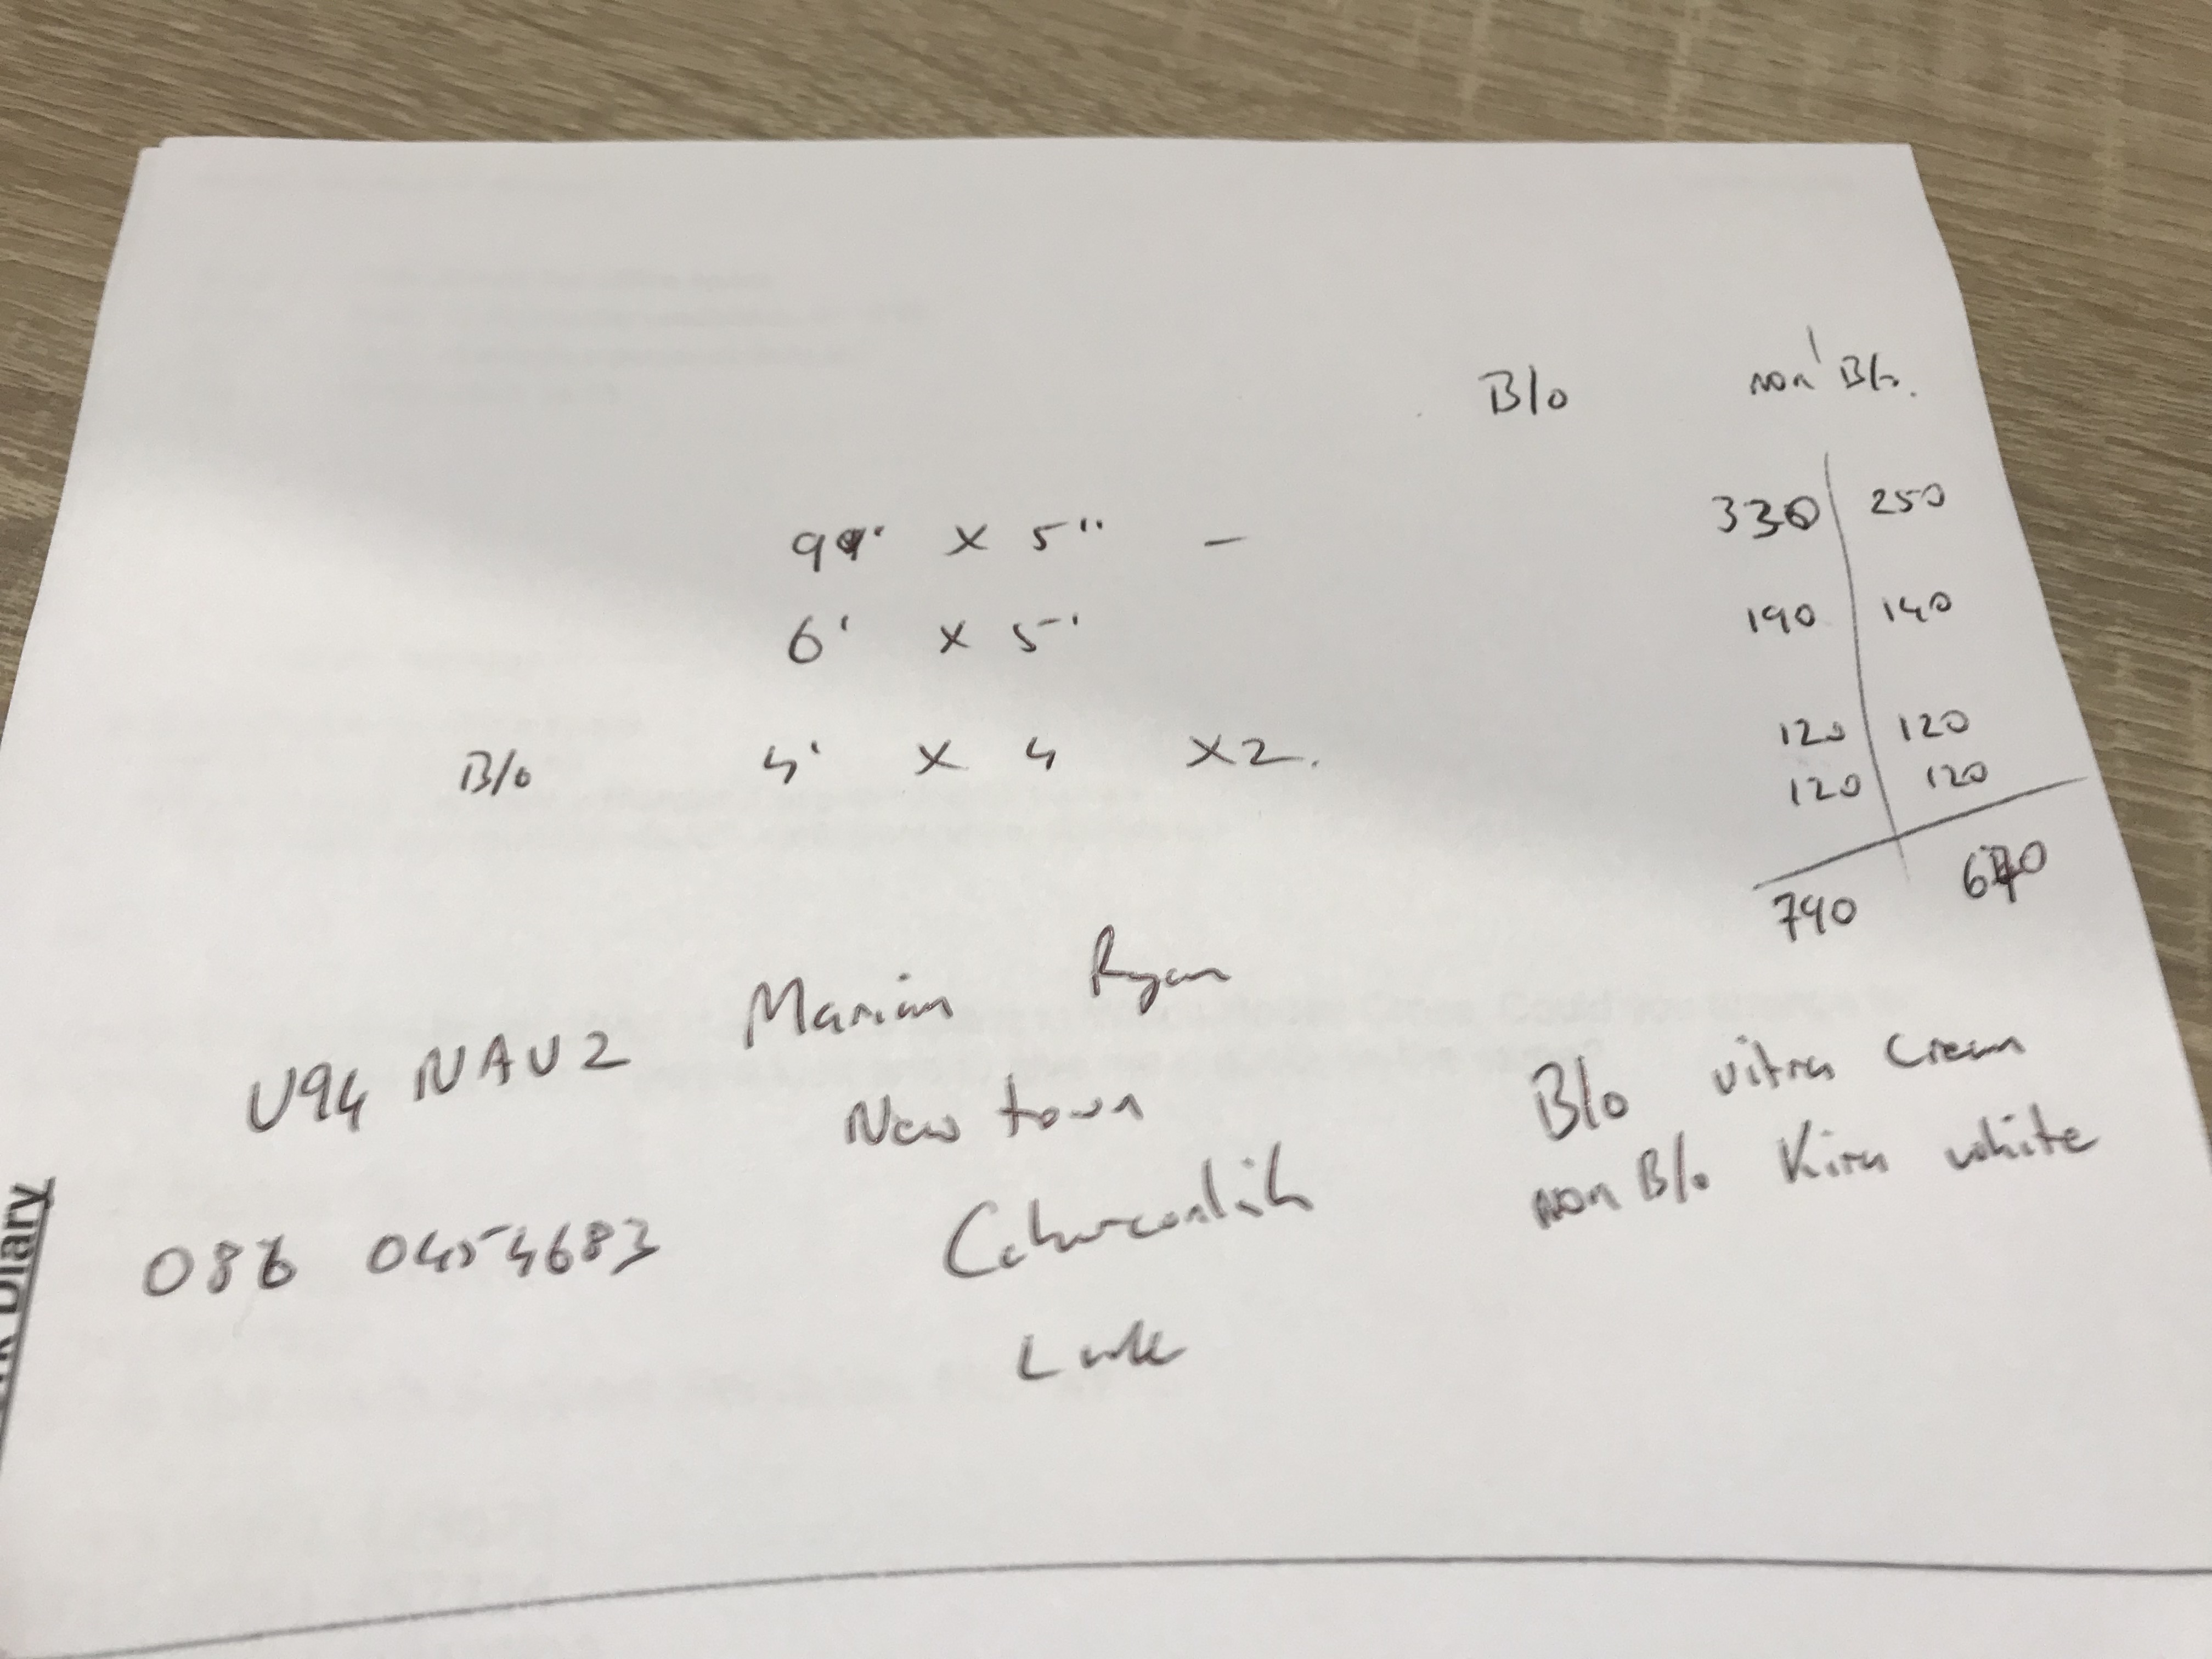 B/o non B/o.
9' x 5" – 330 250
6' x 5' 190 140
B/o 4' x 4 x2. 120 120
120 120
790 640
Marian Ryan
V94 NAV2
New town
B/o vitra cream
non B/o Kira white
086 0454683